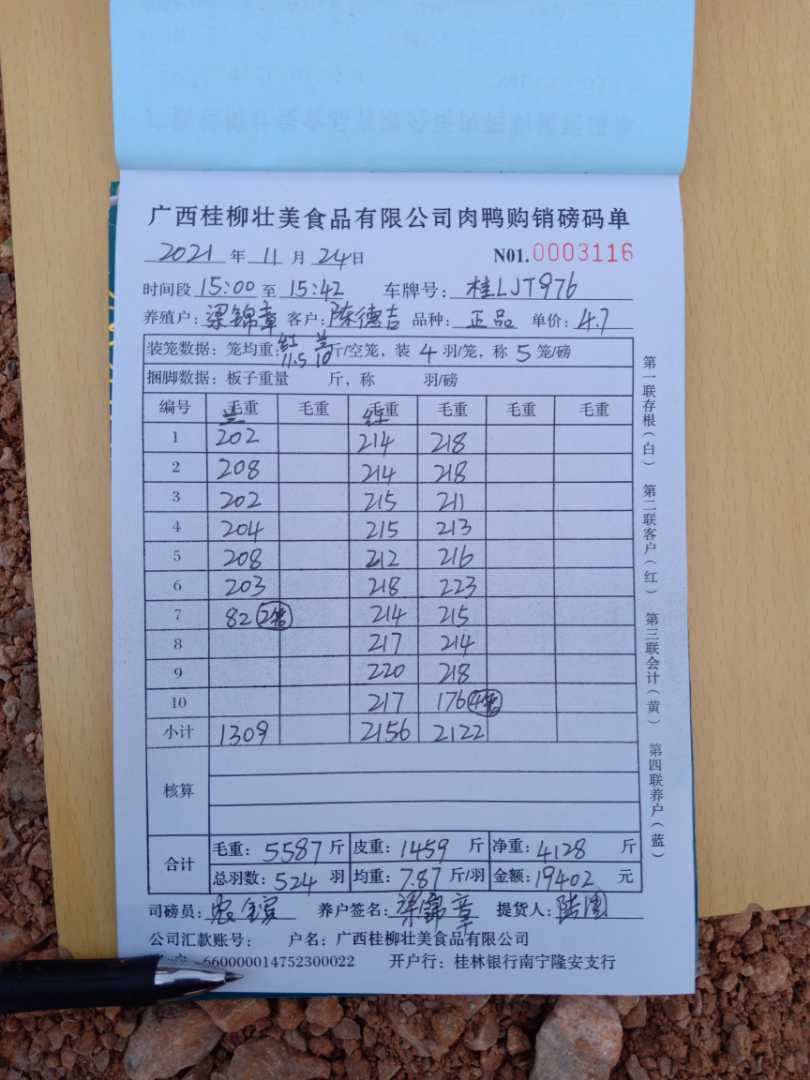 广西桂柳壮美食品有限公司肉鸭购销磅码单
2021 年 11 月 24 日 N01.0003116
时间段 15:00 至 15:42 车牌号: 桂LJT976
养殖户: 梁锦章 客户: 陈德吉 品种: 正品 单价: 4.7
装笼数据: 笼均重: 红 11.5 兰 10 斤/空笼, 装 4 羽/笼, 称 5 笼/磅
捆脚数据: 板子重量 斤, 称 羽/磅
编号 毛重 兰 毛重 毛重 红 毛重 毛重 毛重
1 202 214 218
2 208 214 218
3 202 215 211
4 204 215 213
5 208 212 216
6 203 218 223
7 82 2笼 214 215
8 217 214
9 220 218
10 217 176 4笼
小计 1309 2156 2122
核算
合计 毛重: 5587 斤 皮重: 1459 斤 净重: 4128 斤
总羽数: 524 羽 均重: 7.87 斤/羽 金额: 19402 元
司磅员: 养户签名: 梁锦章 提货人:
公司汇款账号: 户名: 广西桂柳壮美食品有限公司
660000014752300022 开户行: 桂林银行南宁隆安支行
第一联存根(白) 第二联客户(红) 第三联会计(黄) 第四联养户(蓝)